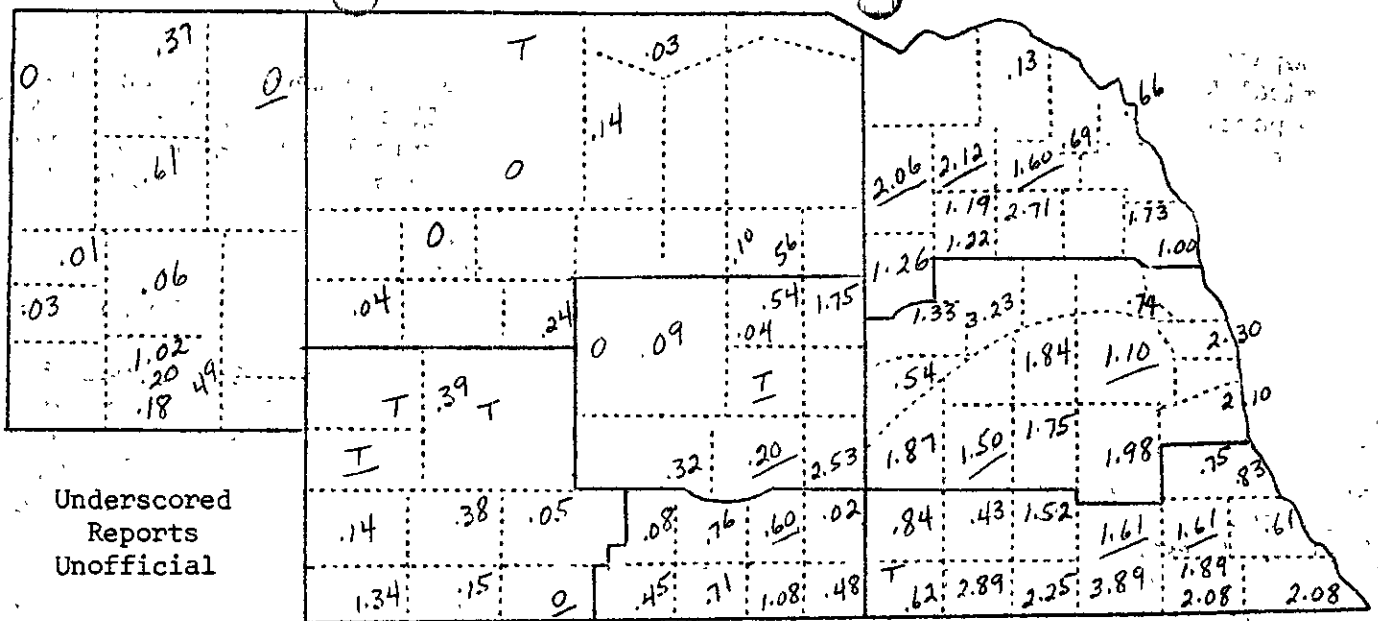 .37
T
.03
.13
0
0
.66
.14
.61
0
2.06 2.12 1.60 .69
1.19 2.71 1.73
0
.10 .56
1.26 1.22 1.00
.01
.06
.03
.04
.24
.54 1.75
1.33 3.23 .74
0 .09 .04
2.30
1.02
.20 .49
.18
T .39 T
T
.54 1.84 1.10
2.10
T
.32 .20 2.53
1.87 1.50 1.75 1.98 .75 .83
Underscored
Reports
Unofficial
.14 .38 .05 .08 .76 .60 .02 .84 .43 1.52 1.61 1.61 .61
1.34 .15 0 .45 .71 1.08 .48 T .62 2.89 2.25 3.89 1.89
2.08 2.08